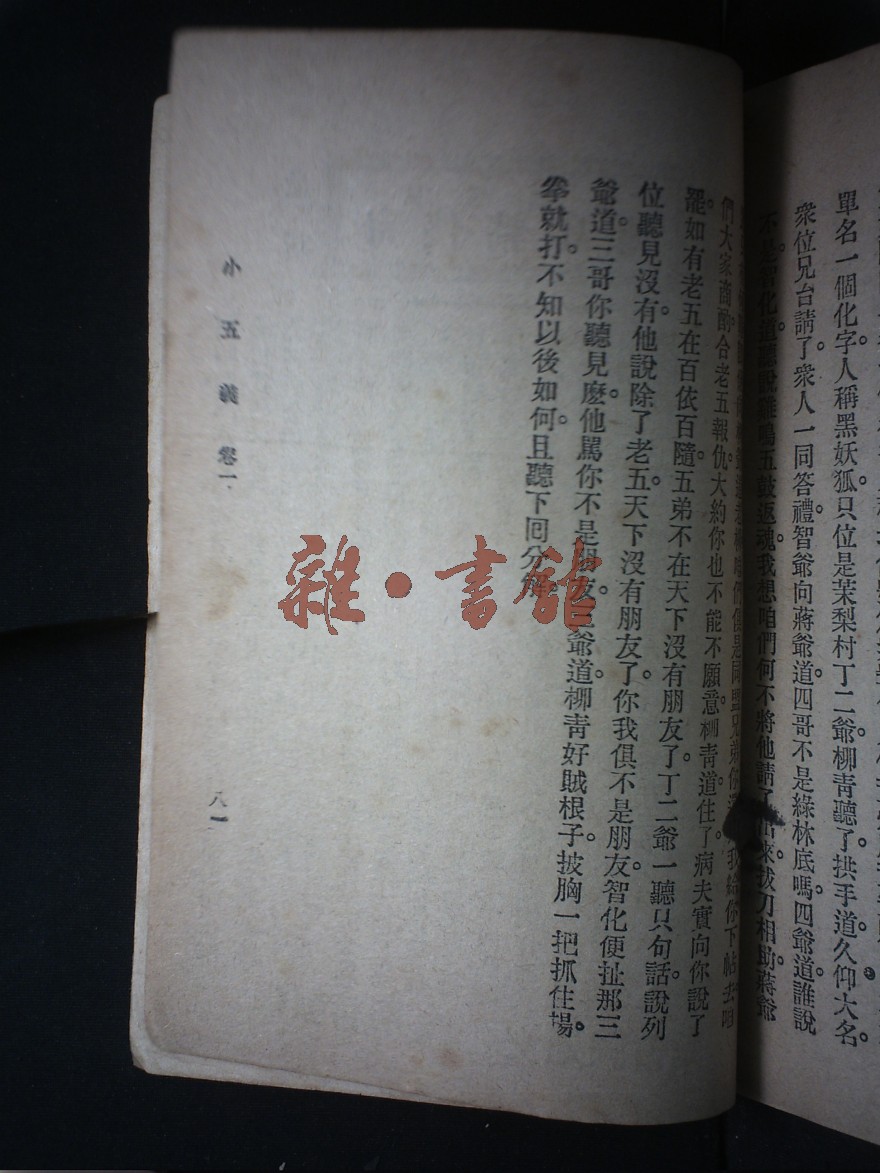 單名一個化字。人稱黑妖狐。只位是茉梨村丁二爺。柳青聽了拱手道久仰大名。
衆位兄台請了。衆人一同答禮。智爺向蔣爺道四哥不是綠林底嗎。四爺道誰說
不是。智化道聽說雞鳴五鼓返魂。我想咱們何不將他請了出來。拔刀相助。蔣爺
們但是同盟兄弟你 我給你下帖去咱
們大家商酌。合老五報仇。大約你也不能不願意。柳青道住了。病夫實向你說了
罷。如有老五在百依百隨。五弟不在天下沒有朋友了。丁二爺一聽只句話。說列
位聽見沒有。他說除了老五天下沒有朋友了。你我俱不是朋友。智化便扯那三
爺。道三哥你聽見麽。他罵你不是朋友。三爺道。柳青好賊根子。披胸一把抓住揚。
拳就打。不知以後如何。且聽下囘分解
小五義 卷一
八一
雜·書館